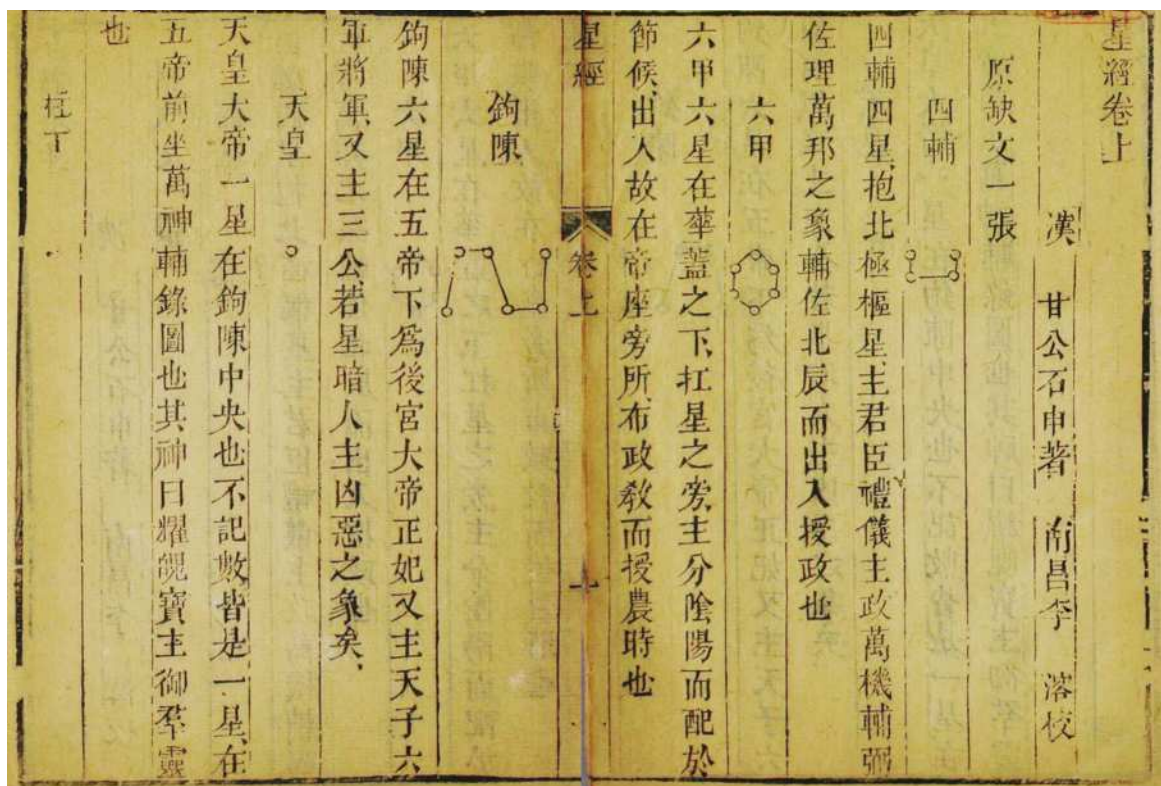 星經卷上
漢 甘公石申著 南昌李 溶校
原缺文一張
四輔
四輔四星抱北極樞星主君臣禮儀主政萬機輔弼
佐理萬邦之象輔佐北辰而出入授政也
六甲
六甲六星在華蓋之下扛星之旁主分陰陽而配於
節候出入故在帝座旁所布政教而授農時也
星經 卷上 一
鉤陳
鉤陳六星在五帝下爲後宮大帝正妃又主天子六
軍將軍又主三公若星暗人主凶惡之象矣
天皇
天皇大帝一星在鉤陳中央也不記數皆是一星在
五帝前坐萬神輔錄圖也其神曰耀魄寶主御羣靈
也
柱下